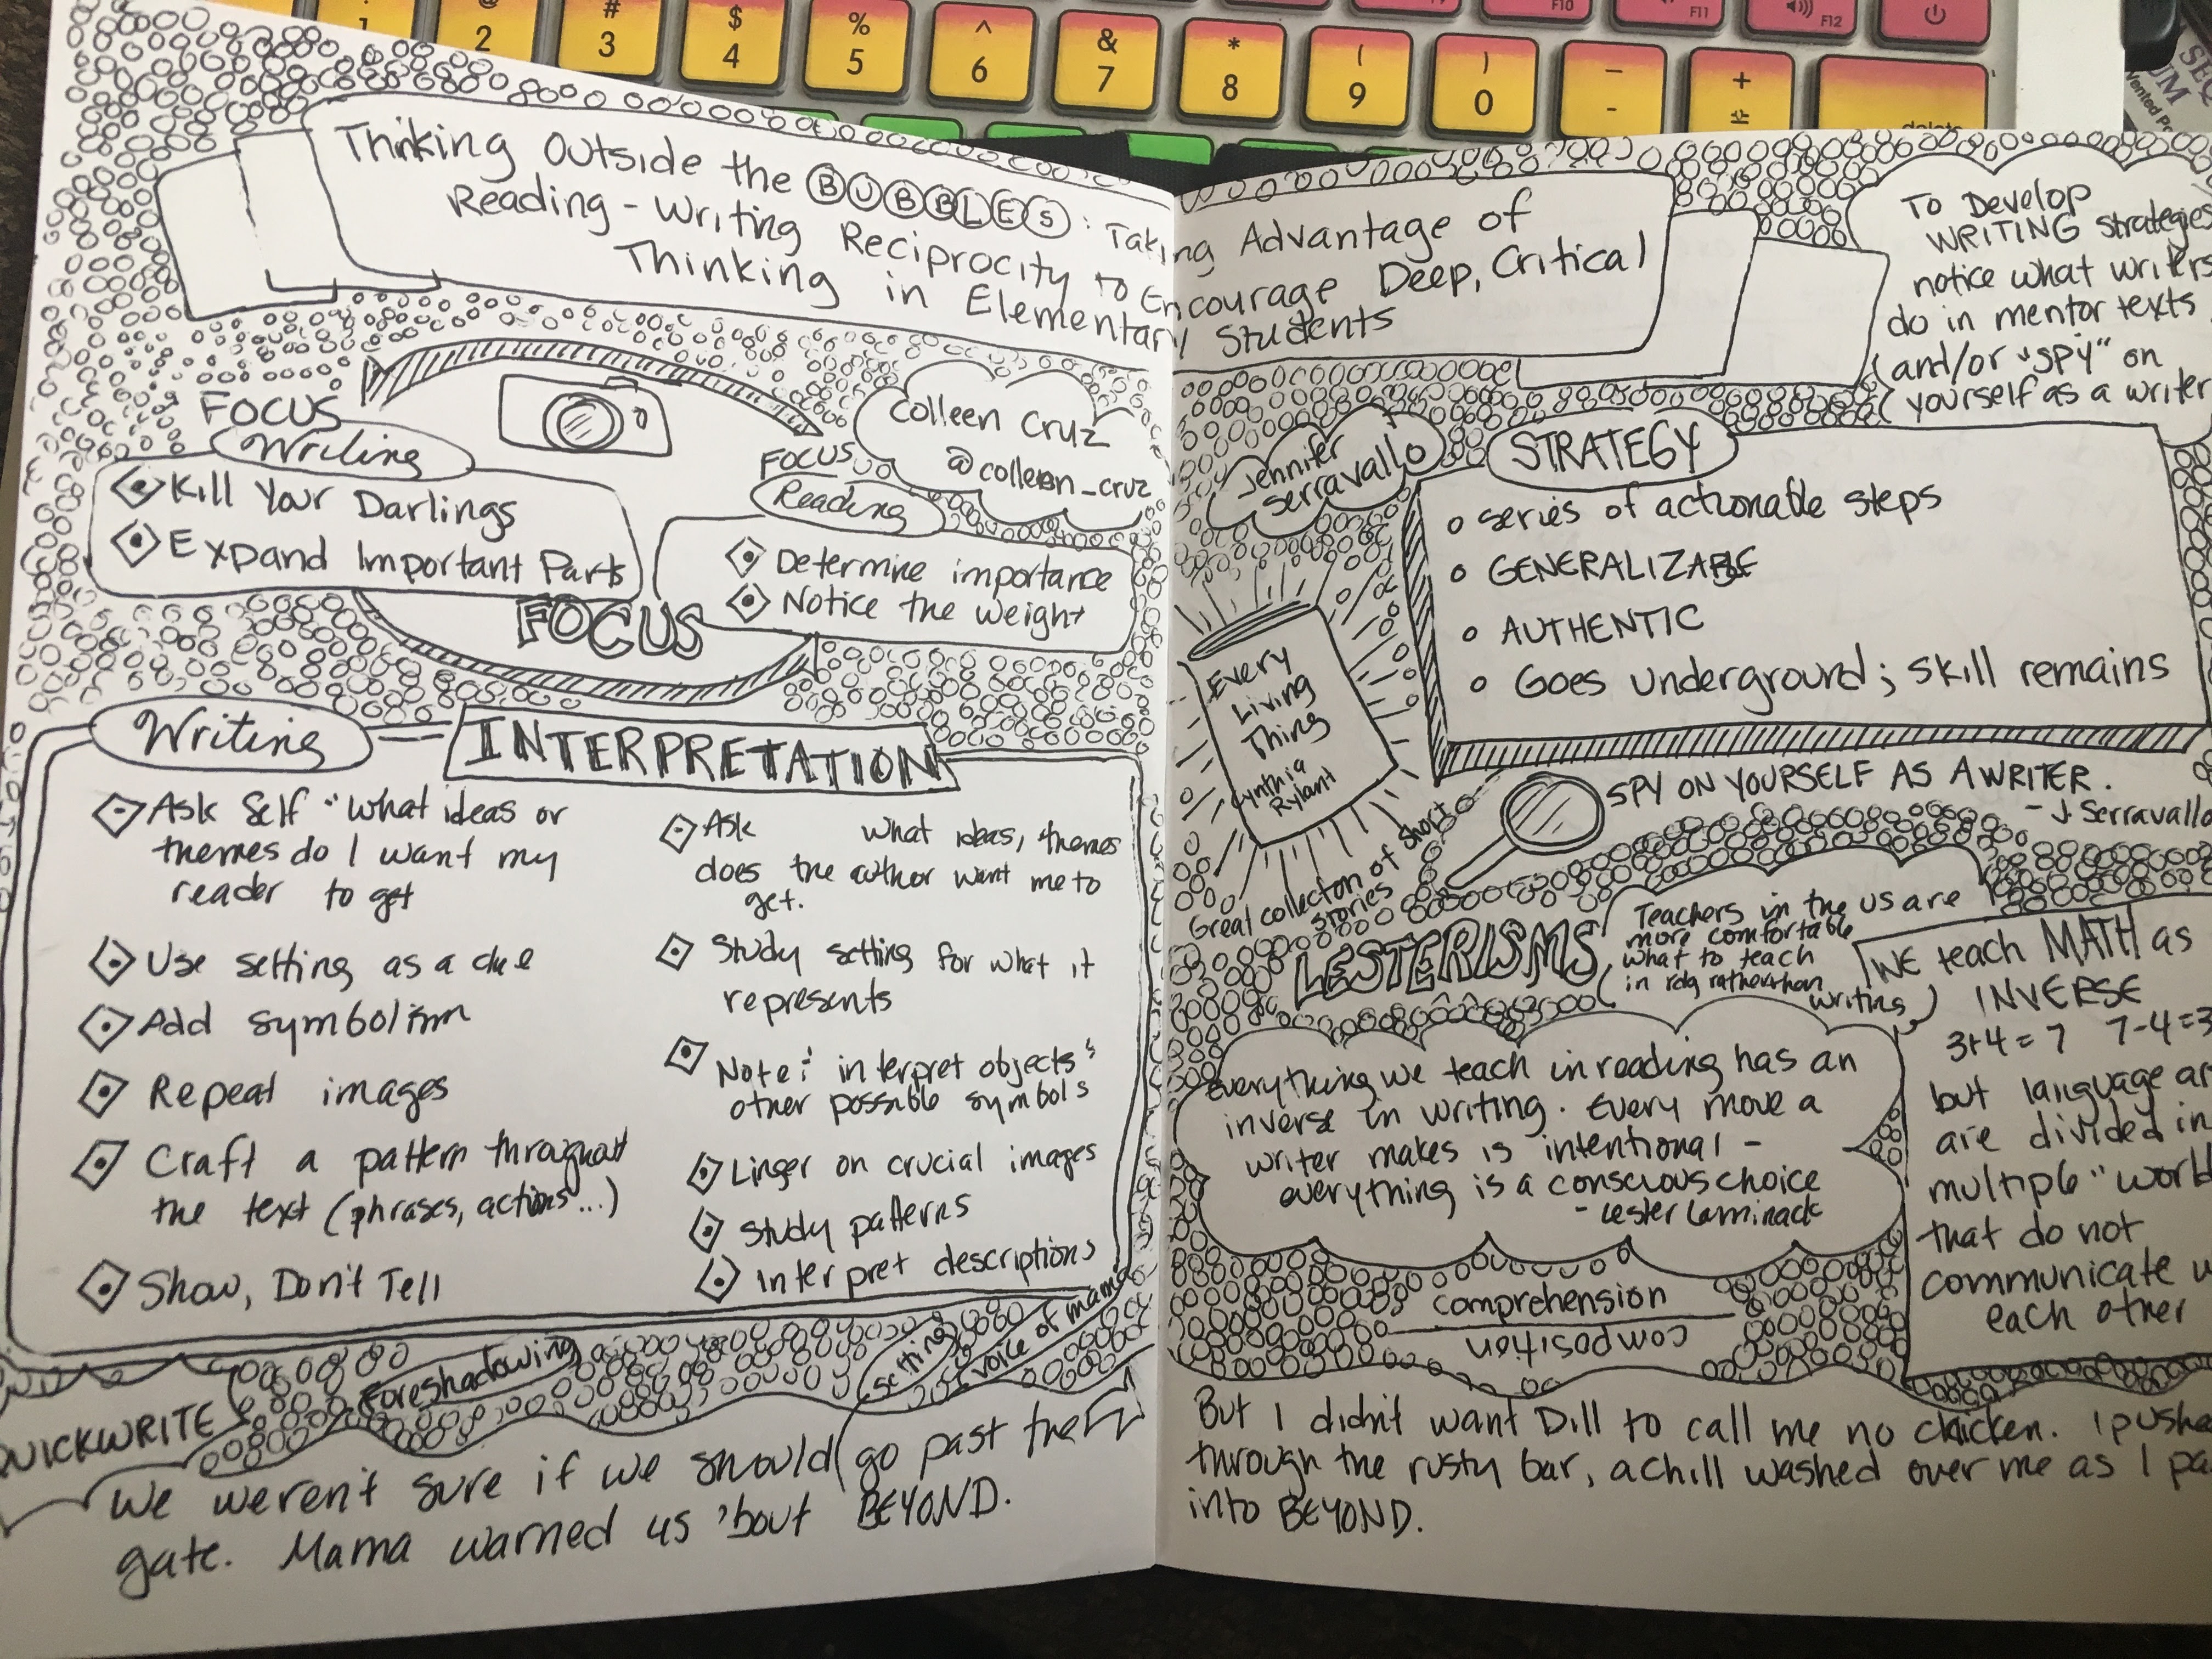 2
# 3
$ 4
% 5
^ 6
& 7
* 8
( 9
) 0
_ -
+ =
F10
F11
F12
Thinking Outside the BUBBLES: Taking Advantage of
Reading-Writing Reciprocity to Encourage Deep, Critical
Thinking in Elementary Students
FOCUS
Writing
Kill Your Darlings
Expand Important Parts
FOCUS
Colleen Cruz
@colleen_cruz
FOCUS
Reading
Determine importance
Notice the weight
Writing
INTERPRETATION
Ask Self "what ideas or
themes do I want my
reader to get
Use setting as a clue
Add symbolism
Repeat images
Craft a pattern throughout
the text (phrases, actions...)
Show, Don't Tell
Ask what ideas, themes
does the author want me to
get.
Study setting for what it
represents
Note: interpret objects &
other possible symbols
Linger on crucial images
Study patterns
Interpret descriptions
Foreshadowing
setting
voice of mama
QUICKWRITE
We weren't sure if we should go past the
gate. Mama warned us 'bout BEYOND.
To Develop
WRITING strategies
notice what writers
do in mentor texts
and/or "spy" on
yourself as a writer
Jennifer
Serravallo
STRATEGY
series of actionable steps
GENERALIZABLE
AUTHENTIC
Goes underground; skill remains
Every
Living
Thing
Cynthia
Rylant
Great collection of short
stories
SPY ON YOURSELF AS A WRITER.
- J. Serravallo
LESTERISMS
Teachers in the US are
more comfortable
what to teach
in rdg rather than
writing
Everything we teach in reading has an
inverse in writing. Every move a
writer makes is intentional -
everything is a conscious choice
- Lester Laminack
comprehension
composition
WE teach MATH as
INVERSE
3+4=7 7-4=3
but language ar
are divided in
multiple "worl
that do not
communicate w
each other
But I didn't want Dill to call me no chicken. I pushe
through the rusty bar, a chill washed over me as I pa
into BEYOND.